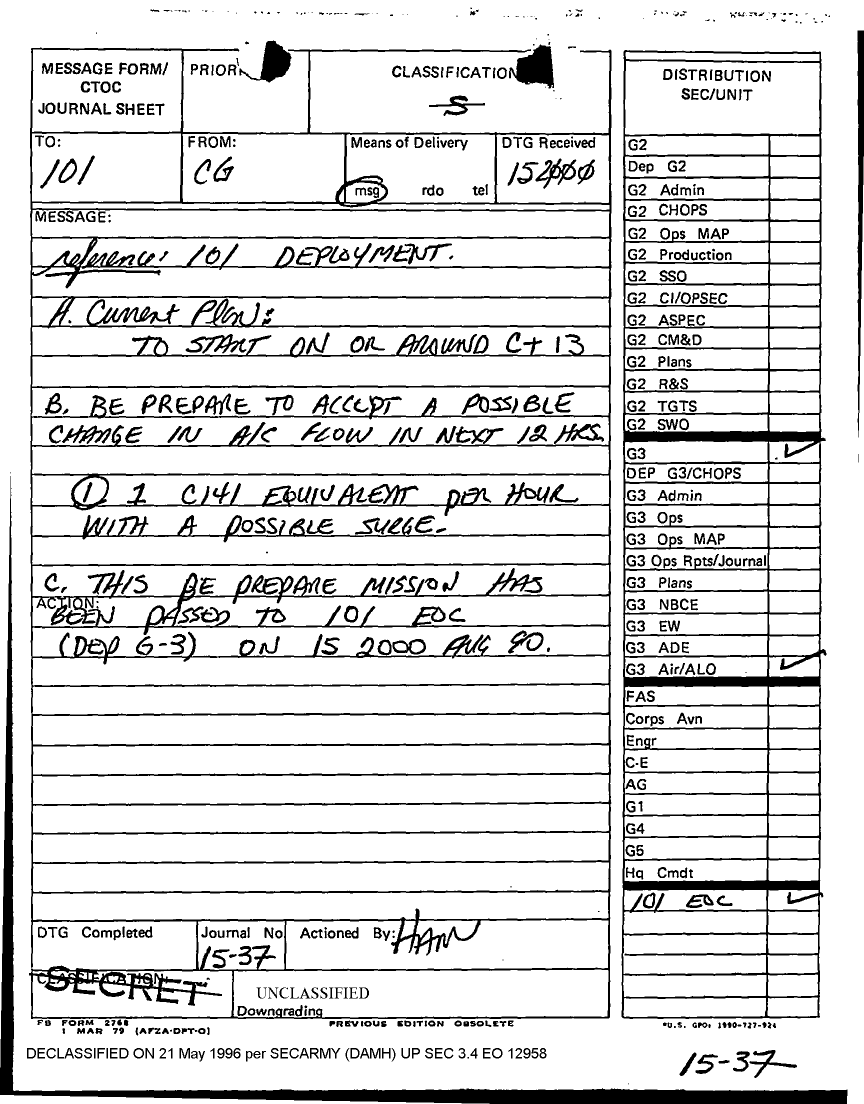 MESSAGE FORM/
CTOC
JOURNAL SHEET
CLASSIFICATION
S
TO:
101
FROM:
CG
Means of Delivery
msg rdo tel
DTG Received
152000
MESSAGE:
reference: 101 DEPLOYMENT.
A. Current Plan:
TO START ON OR AROUND C+13
B. BE PREPARE TO ACCEPT A POSSIBLE
CHANGE IN A/C FLOW IN NEXT 12 HRS.
① 1 C141 EQUIVALENT PER HOUR
WITH A POSSIBLE SURGE.
C. THIS BE PREPARE MISSION HAS
ACTION:
BEEN PASSED TO 101 EOC
(DEP G-3) ON 15 2000 AUG 90.
DTG Completed
Journal No
15-37
Actioned By: HAM
CLASSIFICATION:
SECRET
UNCLASSIFIED
Downgrading
FB FORM 2768
1 MAR 79 (AFZA-DPT-O)
PREVIOUS EDITION OBSOLETE
DECLASSIFIED ON 21 May 1996 per SECARMY (DAMH) UP SEC 3.4 EO 12958
DISTRIBUTION
SEC/UNIT
G2
Dep G2
G2 Admin
G2 CHOPS
G2 Ops MAP
G2 Production
G2 SSO
G2 CI/OPSEC
G2 ASPEC
G2 CM&D
G2 Plans
G2 R&S
G2 TGTS
G2 SWO
G3 ✓
DEP G3/CHOPS
G3 Admin
G3 Ops
G3 Ops MAP
G3 Ops Rpts/Journal
G3 Plans
G3 NBCE
G3 EW
G3 ADE
G3 Air/ALO ✓
FAS
Corps Avn
Engr
C-E
AG
G1
G4
G5
Hq Cmdt
101 EOC ✓
*U.S. GPO: 1990-727-924
15-37